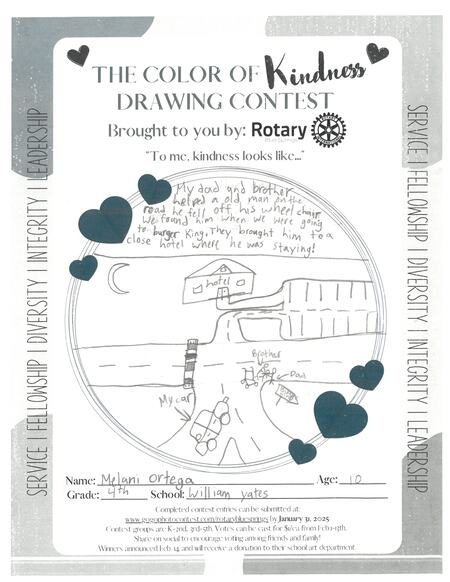 THE COLOR OF Kindness
DRAWING CONTEST
Brought to you by: Rotary
"To me, kindness looks like..."
My dad and brother
helped a old man on the
road he fell off his wheel chair
We found him when we were going
to burger King. They brought him to a
close hotel where he was staying!
hotel
Brother
Dad
My car
SERVICE | FELLOWSHIP | DIVERSITY | INTEGRITY | LEADERSHIP
SERVICE | FELLOWSHIP | DIVERSITY | INTEGRITY | LEADERSHIP
Name: Melani Ortega Age: 10
Grade: 4th School: William yates
Completed contest entries can be submitted at:
www.gogophotocontest.com/rotarybluesprings by January 31, 2025
Contest groups are K-2nd, 3rd-5th. Votes can be cast for $1/ea from Feb 1-13th.
Share on social to encourage voting among friends and family!
Winners announced Feb. 14 and will receive a donation to their school art department.